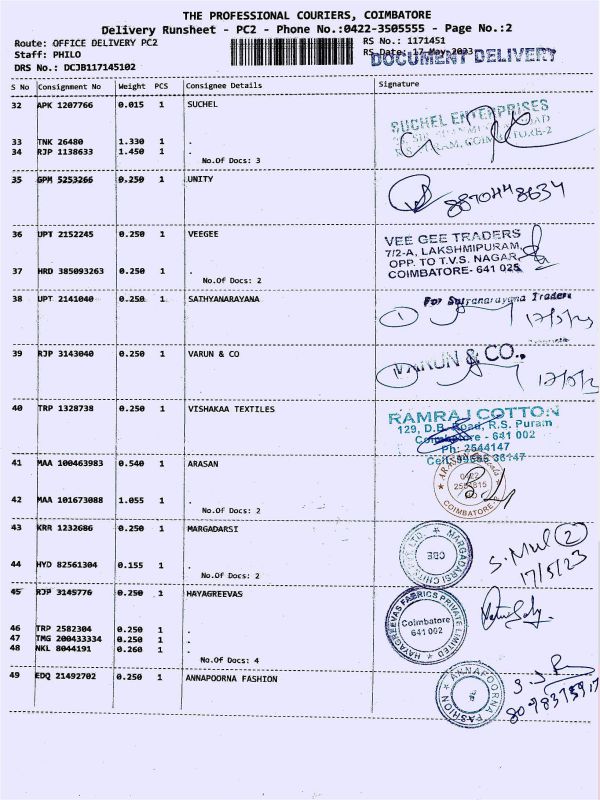 THE PROFESSIONAL COURIERS, COIMBATORE
Delivery Runsheet - PC2 - Phone No.:0422-3505555 - Page No.:2
Route: OFFICE DELIVERY PC2
Staff: PHILO
DRS No.: DCJB117145102
RS No.: 1171451
RS Date: 17-May-2023
DOCUMENT DELIVERY
S No Consignment No Weight PCS Consignee Details Signature
32 APK 1207766 0.015 1 SUCHEL
SUCHEL ENTERPRISES
33 TNK 26480 1.330 1 .
34 RJP 1138633 1.450 1 .
No.Of Docs: 3
35 GPM 5253266 0.250 1 UNITY
8870448634
36 UPT 2152245 0.250 1 VEEGEE
VEE GEE TRADERS
7/2-A, LAKSHMIPURAM,
OPP. TO T.V.S. NAGAR,
COIMBATORE- 641 025
37 HRD 385093263 0.250 1 .
No.Of Docs: 2
38 UPT 2141040 0.250 1 SATHYANARAYANA
For Satyanarayana Traders
1 17/5/23
39 RJP 3143040 0.250 1 VARUN & CO
VARUN & CO.,
40 TRP 1328738 0.250 1 VISHAKAA TEXTILES
RAMRAJ COTTON
129, D.B. Road, R.S. Puram
Coimbatore - 641 002
Ph: 2544147
Cell: 99655 36147
41 MAA 100463983 0.540 1 ARASAN
ARASAN
0422
COIMBATORE
42 MAA 101673088 1.055 1 .
No.Of Docs: 2
43 KRR 1232686 0.250 1 MARGADARSI
MARGADARSI CHITS PVT LTD
CBE
2
17/5/23
44 HYD 82561304 0.155 1 .
No.Of Docs: 2
45 RJP 3145776 0.250 1 HAYAGREEVAS
HAYAGREEVAS FABRICS PRIVATE LIMITED
Coimbatore
641 002
46 TRP 2582304 0.250 1 .
47 TMG 200433334 0.250 1 .
48 NKL 8044191 0.260 1 .
No.Of Docs: 4
49 EDQ 21492702 0.250 1 ANNAPOORNA FASHION
ANNAPOORNA FASHION